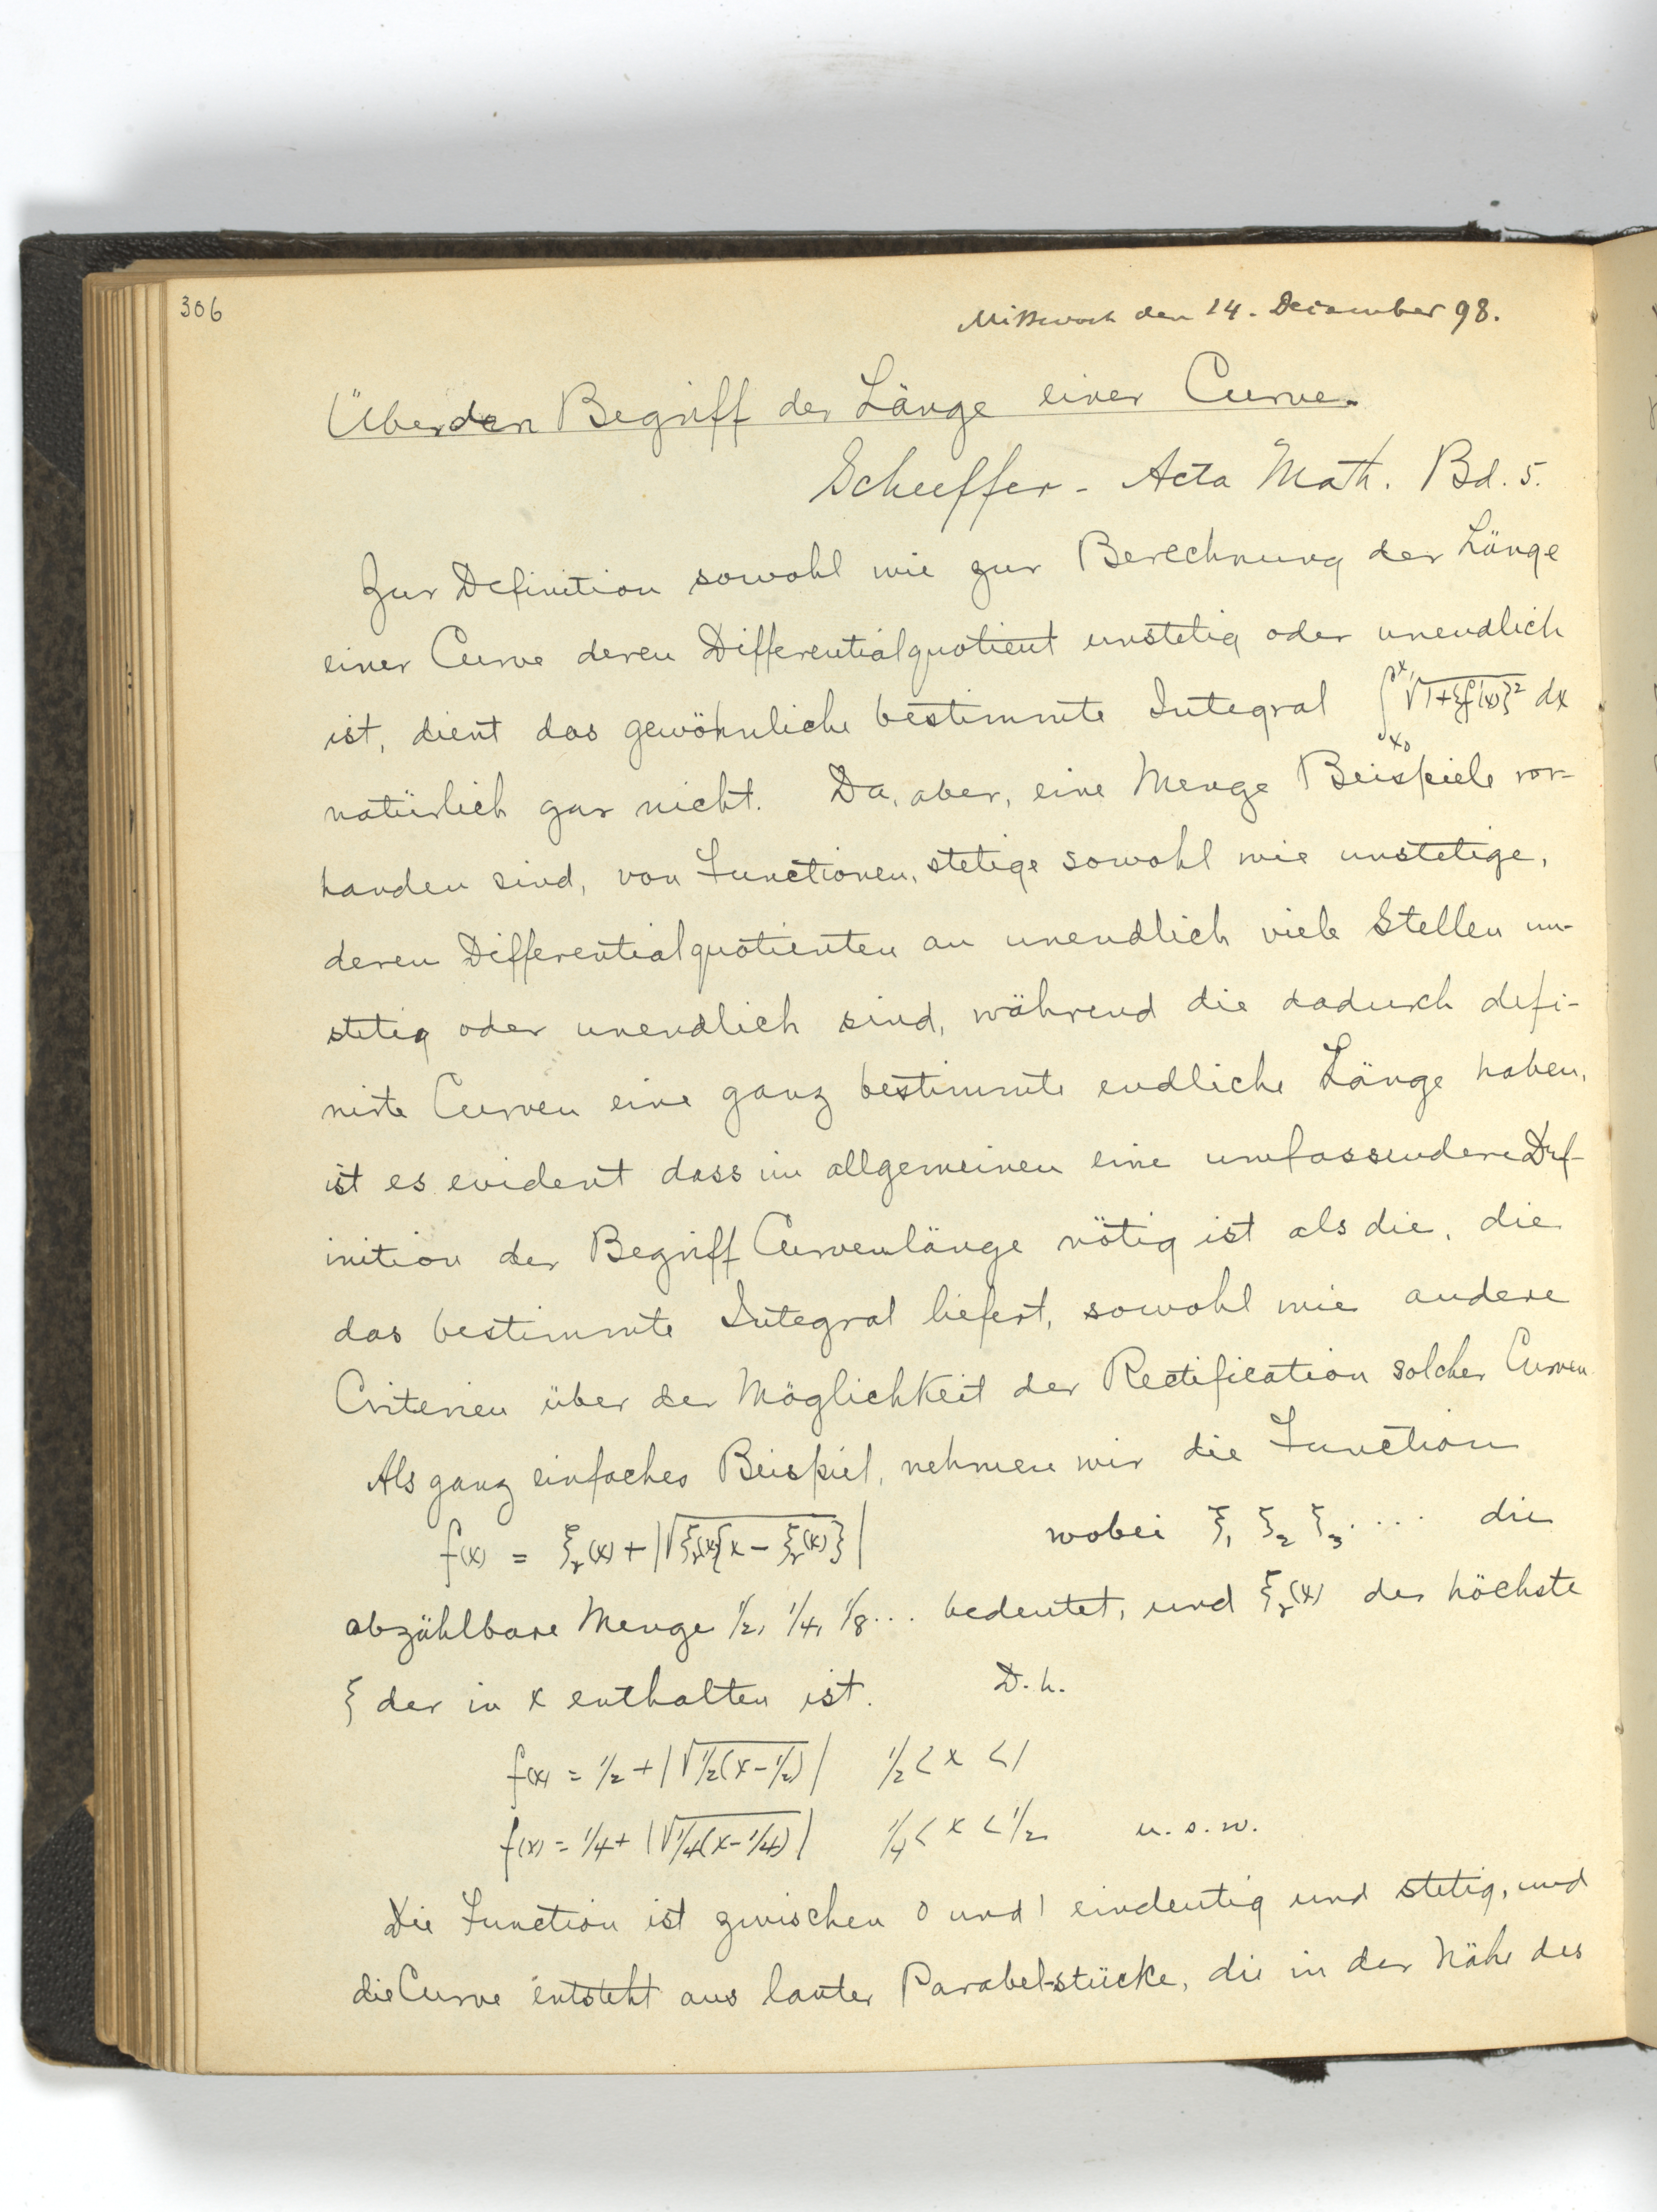 306
Mittwoch den 14. December 98.
Über den Begriff der Länge einer Curve.
Scheeffer - Acta Math. Bd. 5.
Zur Definition sowohl wie zur Berechnung der Länge
einer Curve deren Differentialquotient unstetig oder unendlich
ist, dient das gewöhnliche bestimmte Integral ∫_{x₀}^{x₁} √(1+{f'(x)}²) dx
natürlich gar nicht. Da, aber, eine Menge Beispiele vor-
handen sind, von Functionen, stetige sowohl wie unstetige,
deren Differentialquotienten an unendlich viele Stellen un-
stetig oder unendlich sind, während die dadurch defi-
nirte Curven eine ganz bestimmte endliche Länge haben,
ist es evident dass im allgemeinen eine umfassendere Def-
inition der Begriff Curvenlänge nötig ist als die, die
das bestimmte Integral liefert, sowohl wie andere
Criterien über der Möglichkeit der Rectification solcher Curven
Als ganz einfaches Beispiel, nehmen wir die Function
f(x) = ξ_r(x) + |√(ξ_r(x){x - ξ_r(x)})| wobei ξ₁ ξ₂ ξ₃ .... die
abzählbare Menge 1/2, 1/4, 1/8 ... bedeutet, und ξ_r(x) der höchste
ξ der in x enthalten ist. D.h.
f(x) = 1/2 + |√(1/2(x-1/2))| 1/2 < x < 1
f(x) = 1/4 + |√(1/4(x-1/4))| 1/4 < x < 1/2 u.s.w.
Die Function ist zwischen 0 und 1 eindeutig und stetig, und
die Curve entsteht aus lauter Parabel-stücke, die in der Nähe des